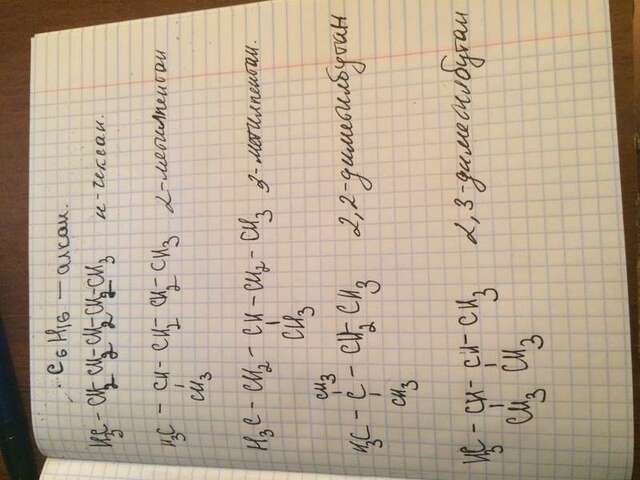 C₆H₁₆ — алкан.
H₃C – CH₂ – CH₂ – CH₂ – CH₂ – CH₃ н-гексан.
H₃C – CH – CH₂ – CH₂ – CH₃ 2-метилпентан
CH₃
H₃C – CH₂ – CH – CH₂ – CH₃ 3-метилпентан.
CH₃
CH₃
H₃C – C – CH₂ – CH₃ 2,2-диметилбутан
CH₃
H₃C – CH – CH – CH₃ 2,3-диметилбутан
CH₃ CH₃